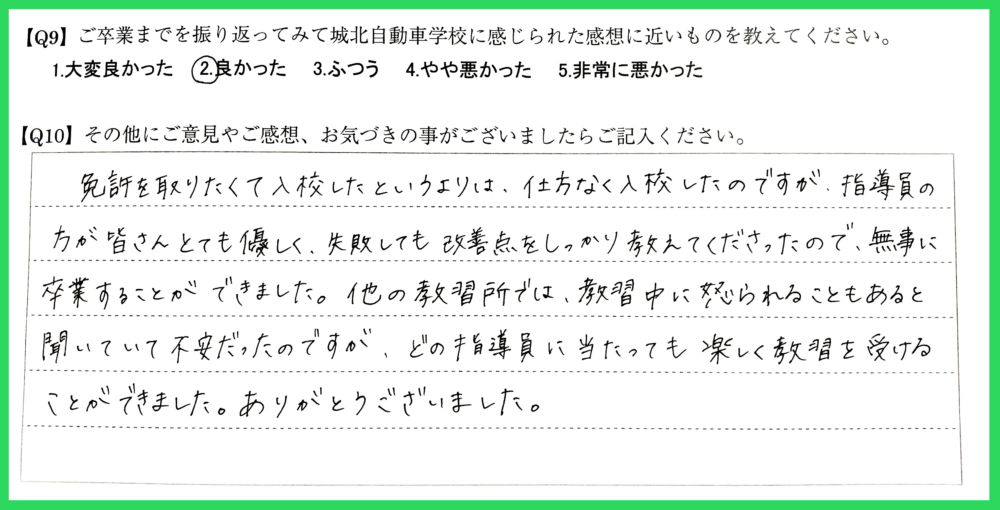 【Q9】ご卒業までを振り返ってみて城北自動車学校に感じられた感想に近いものを教えてください。
1.大変良かった 2.良かった 3.ふつう 4.やや悪かった 5.非常に悪かった
【Q10】その他にご意見やご感想、お気づきの事がございましたらご記入ください。
免許を取りたくて入校したというよりは、仕方なく入校したのですが、指導員の
方が皆さんとても優しく、失敗しても改善点をしっかり教えてくださったので、無事に
卒業することができました。他の教習所では、教習中に怒られることもあると
聞いていて不安だったのですが、どの指導員に当たっても楽しく教習を受ける
ことができました。ありがとうございました。